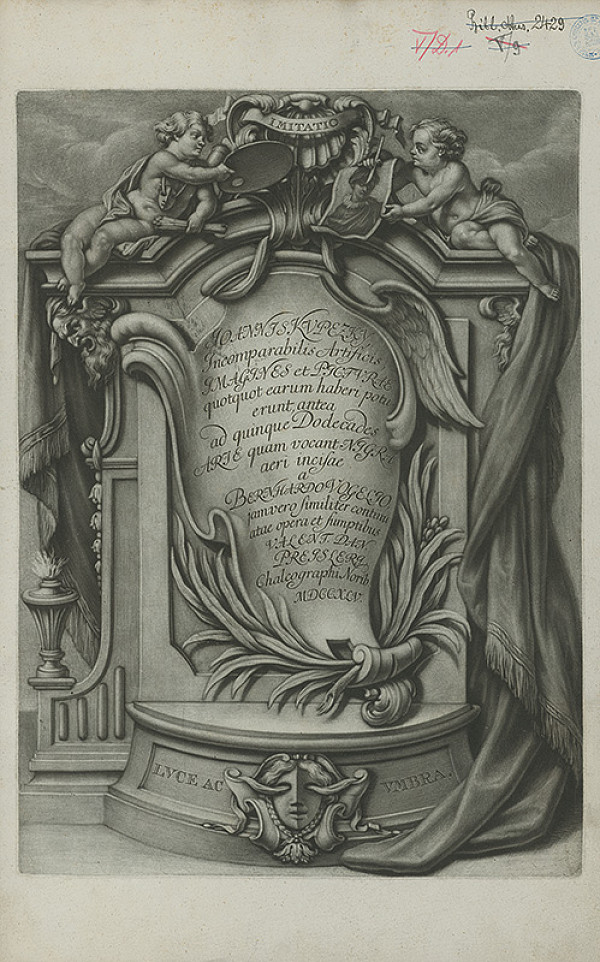 Bibl. Mus. 2429
V/D.1 V/9
IMITATIO
IOANNIS KVPEZKY
Incomparabilis Artificis
IMAGINES et PICTVRAE
quotquot earum haberi potu
erunt, antea
ad quinque Dodecades
ARTE quam vocant NIGRA
aeri incisae
a
BERNHARDO VOGELIO,
jam vero similiter continu
atae opera et sumptibus
VALENT. DAN.
PREISLERI,
Chalcographi Norib.
MDCCXLV.
LVCE AC VMBRA.